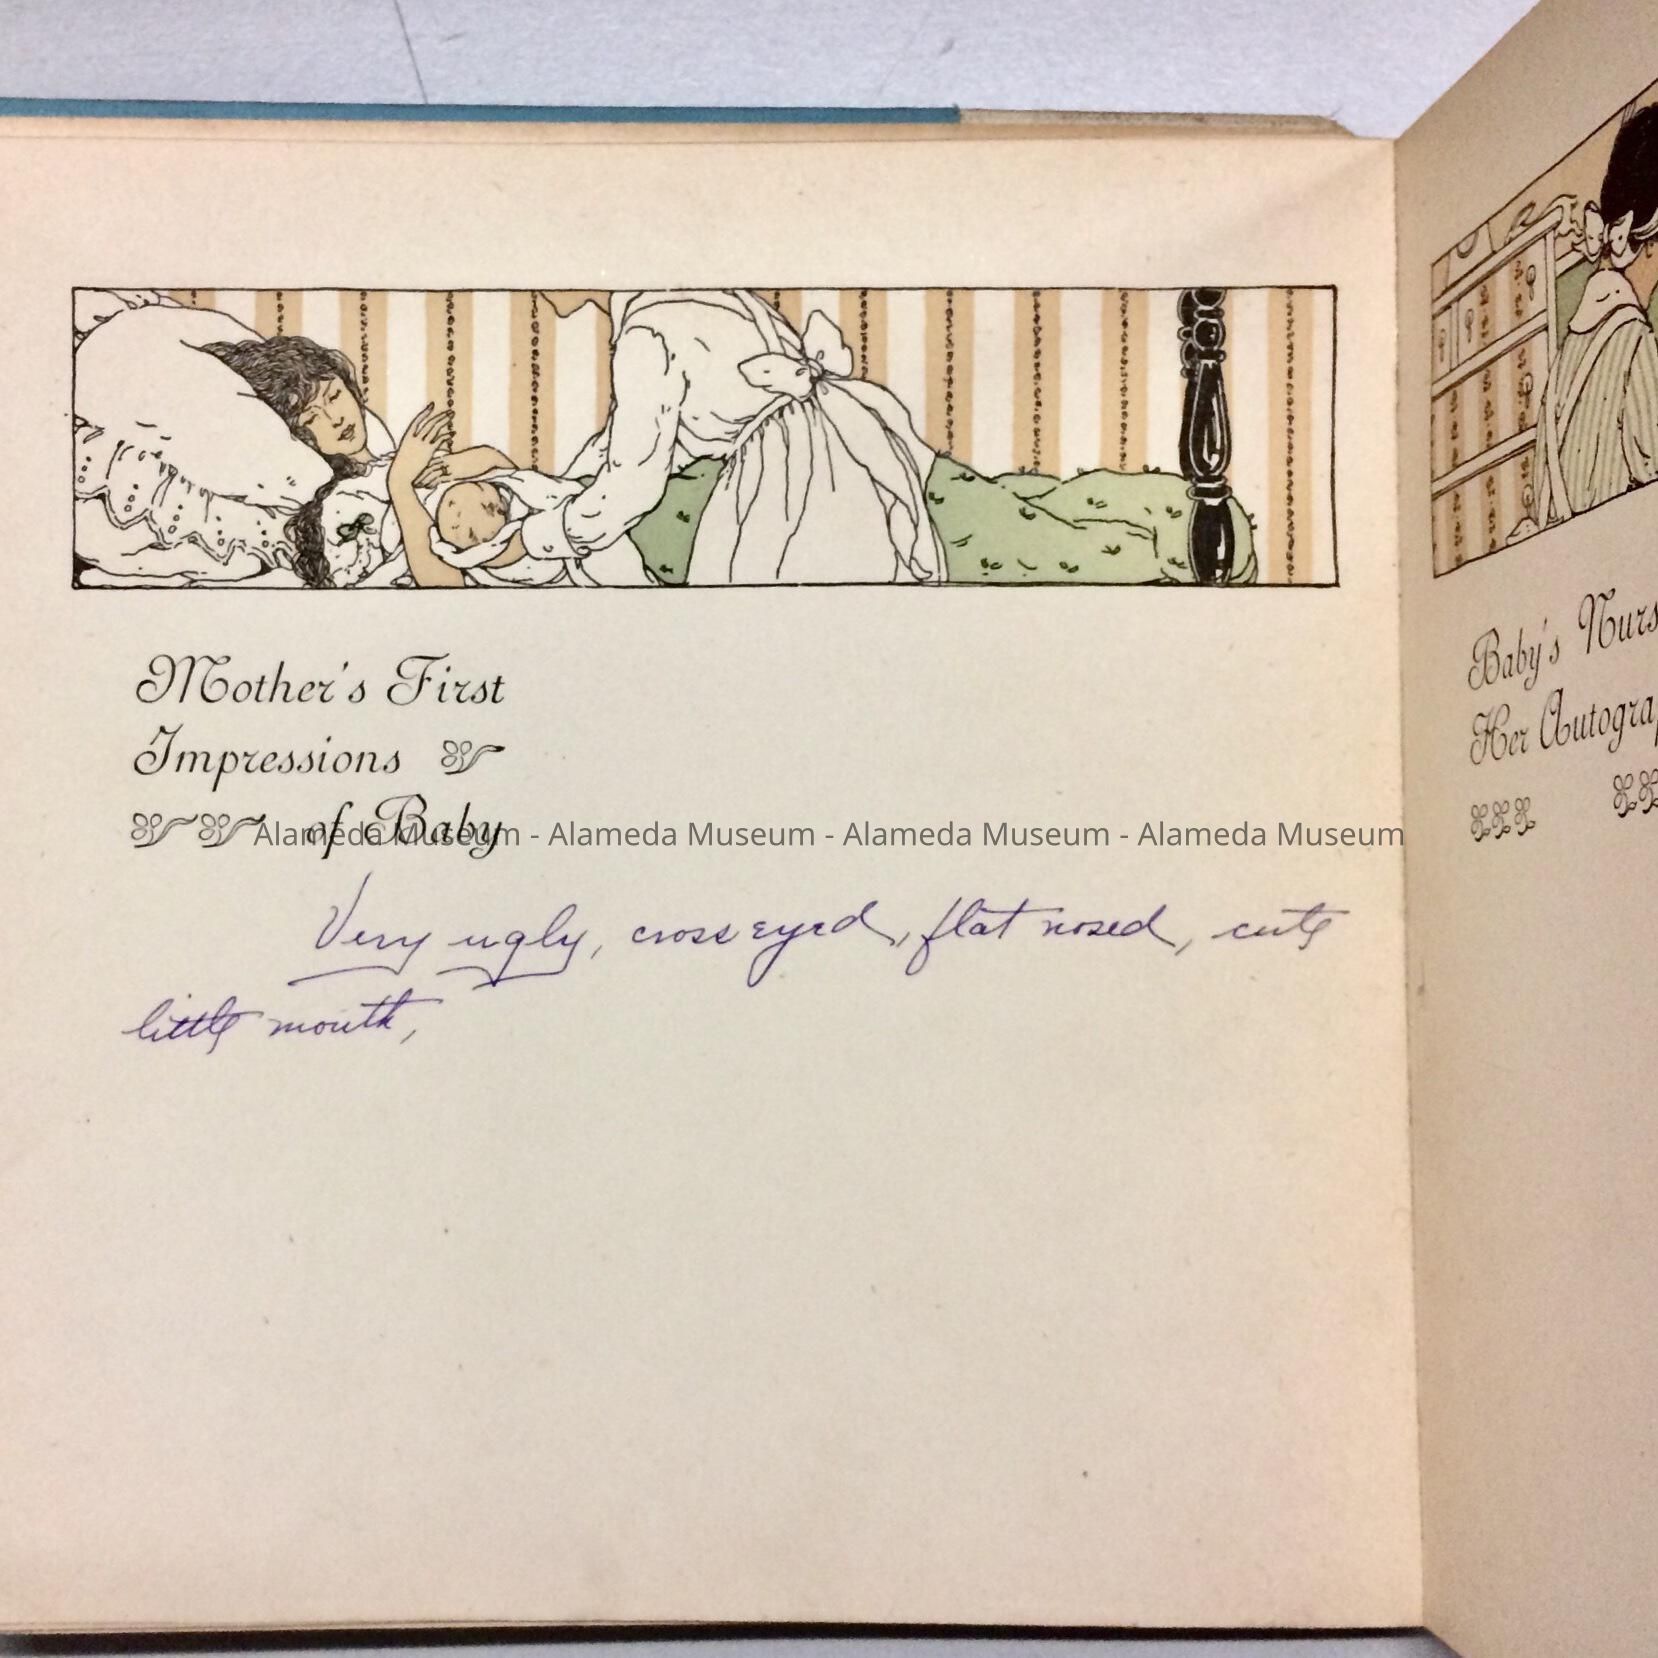 Mother's First
Impressions
of Baby
Alameda Museum - Alameda Museum - Alameda Museum - Alameda Museum
Very ugly, cross eyed, flat nosed, cute
little mouth,
Baby's
Her